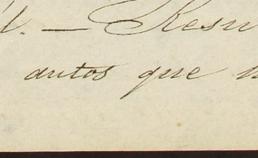 l. — Resu
autos que